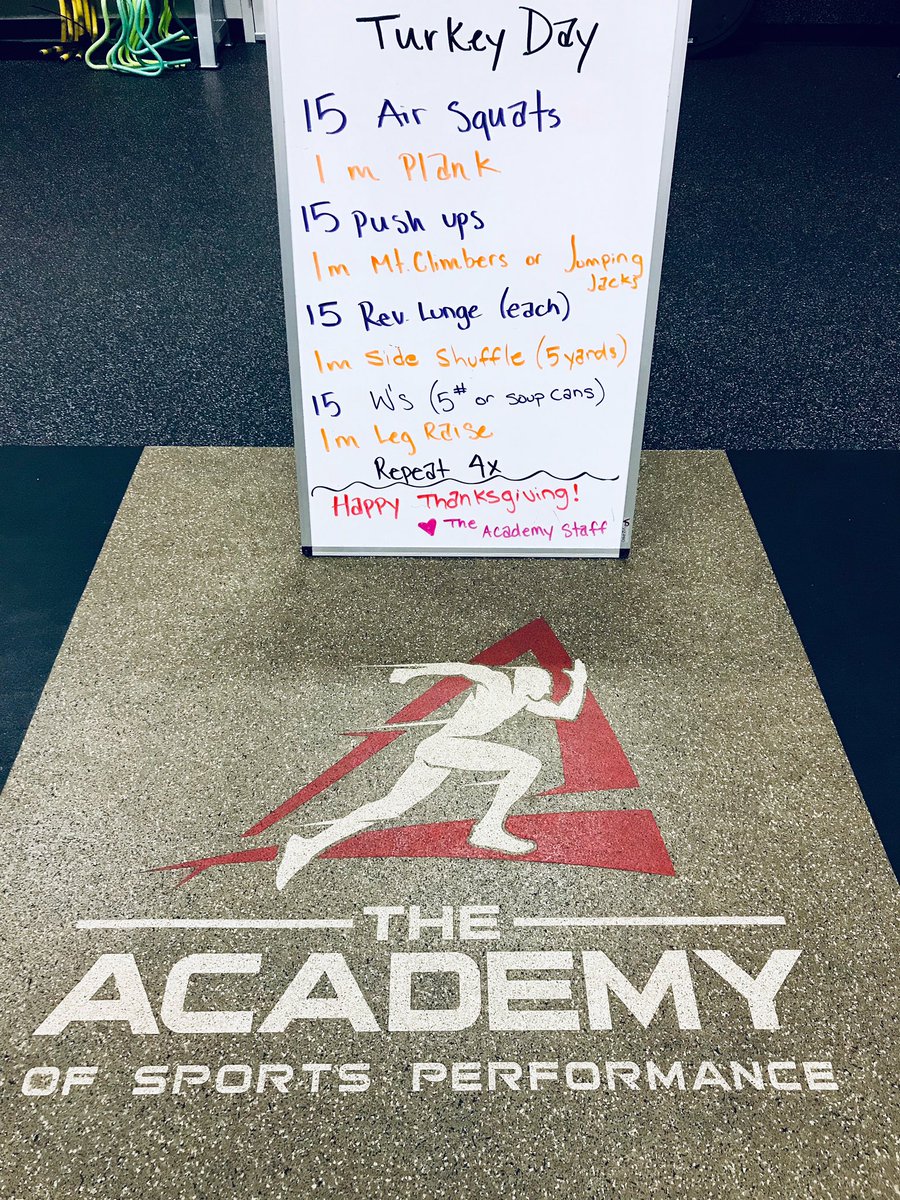 Turkey Day
15 Air Squats
1 m Plank
15 Push ups
1m Mt. Climbers or Jumping
Jacks
15 Rev. Lunge (each)
1m Side Shuffle (5 yards)
15 W's (5# or soup cans)
1m Leg Raise
Repeat 4x
Happy Thanksgiving!
♥ The Academy Staff
THE
ACADEMY
OF SPORTS PERFORMANCE